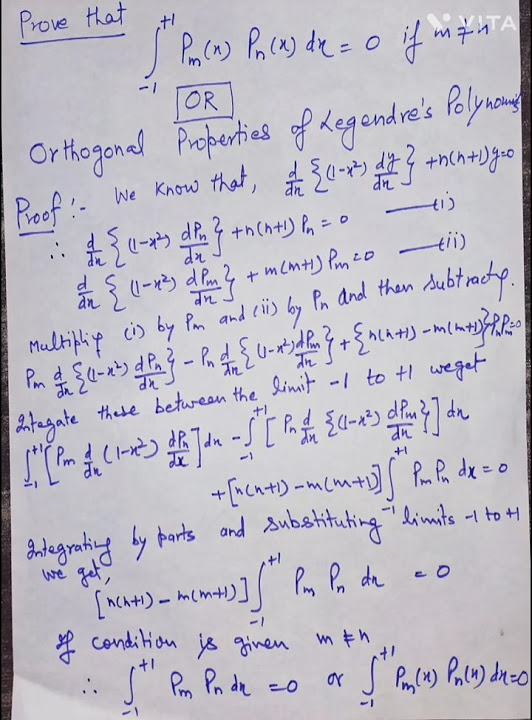 Prove that
VITA
∫₋₁⁺¹ Pm(x) Pn(x) dx = 0 if m ≠ n
OR
Orthogonal Properties of Legendre's Polynomials
Proof :- We know that, d/dx {(1-x²) dy/dx} + n(n+1)y=0
∴ d/dx {(1-x²) dPn/dx} + n(n+1) Pn = 0 —(i)
d/dx {(1-x²) dPm/dx} + m(m+1) Pm=0 —(ii)
Multiply (i) by Pm and (ii) by Pn and then subtractg.
Pm d/dx {(1-x²) dPn/dx} - Pn d/dx {(1-x²) dPm/dx} + {n(n+1) - m(m+1)} PnPm=0
Integate these between the limit -1 to +1 we get
∫₋₁⁺¹ [Pm d/dx (1-x²) dPn/dx] dx - ∫₋₁⁺¹ [Pn d/dx {(1-x²) dPm/dx}] dx
+ [n(n+1) - m(m+1)] ∫₋₁⁺¹ PmPn dx = 0
Integrating by parts and substituting limits -1 to +1
we get,
[n(n+1) - m(m+1)] ∫₋₁⁺¹ Pm Pn dx = 0
If condition is given m ≠ n
∴ ∫₋₁⁺¹ Pm Pn dx = 0 or ∫₋₁⁺¹ Pm(x) Pn(x) dx=0